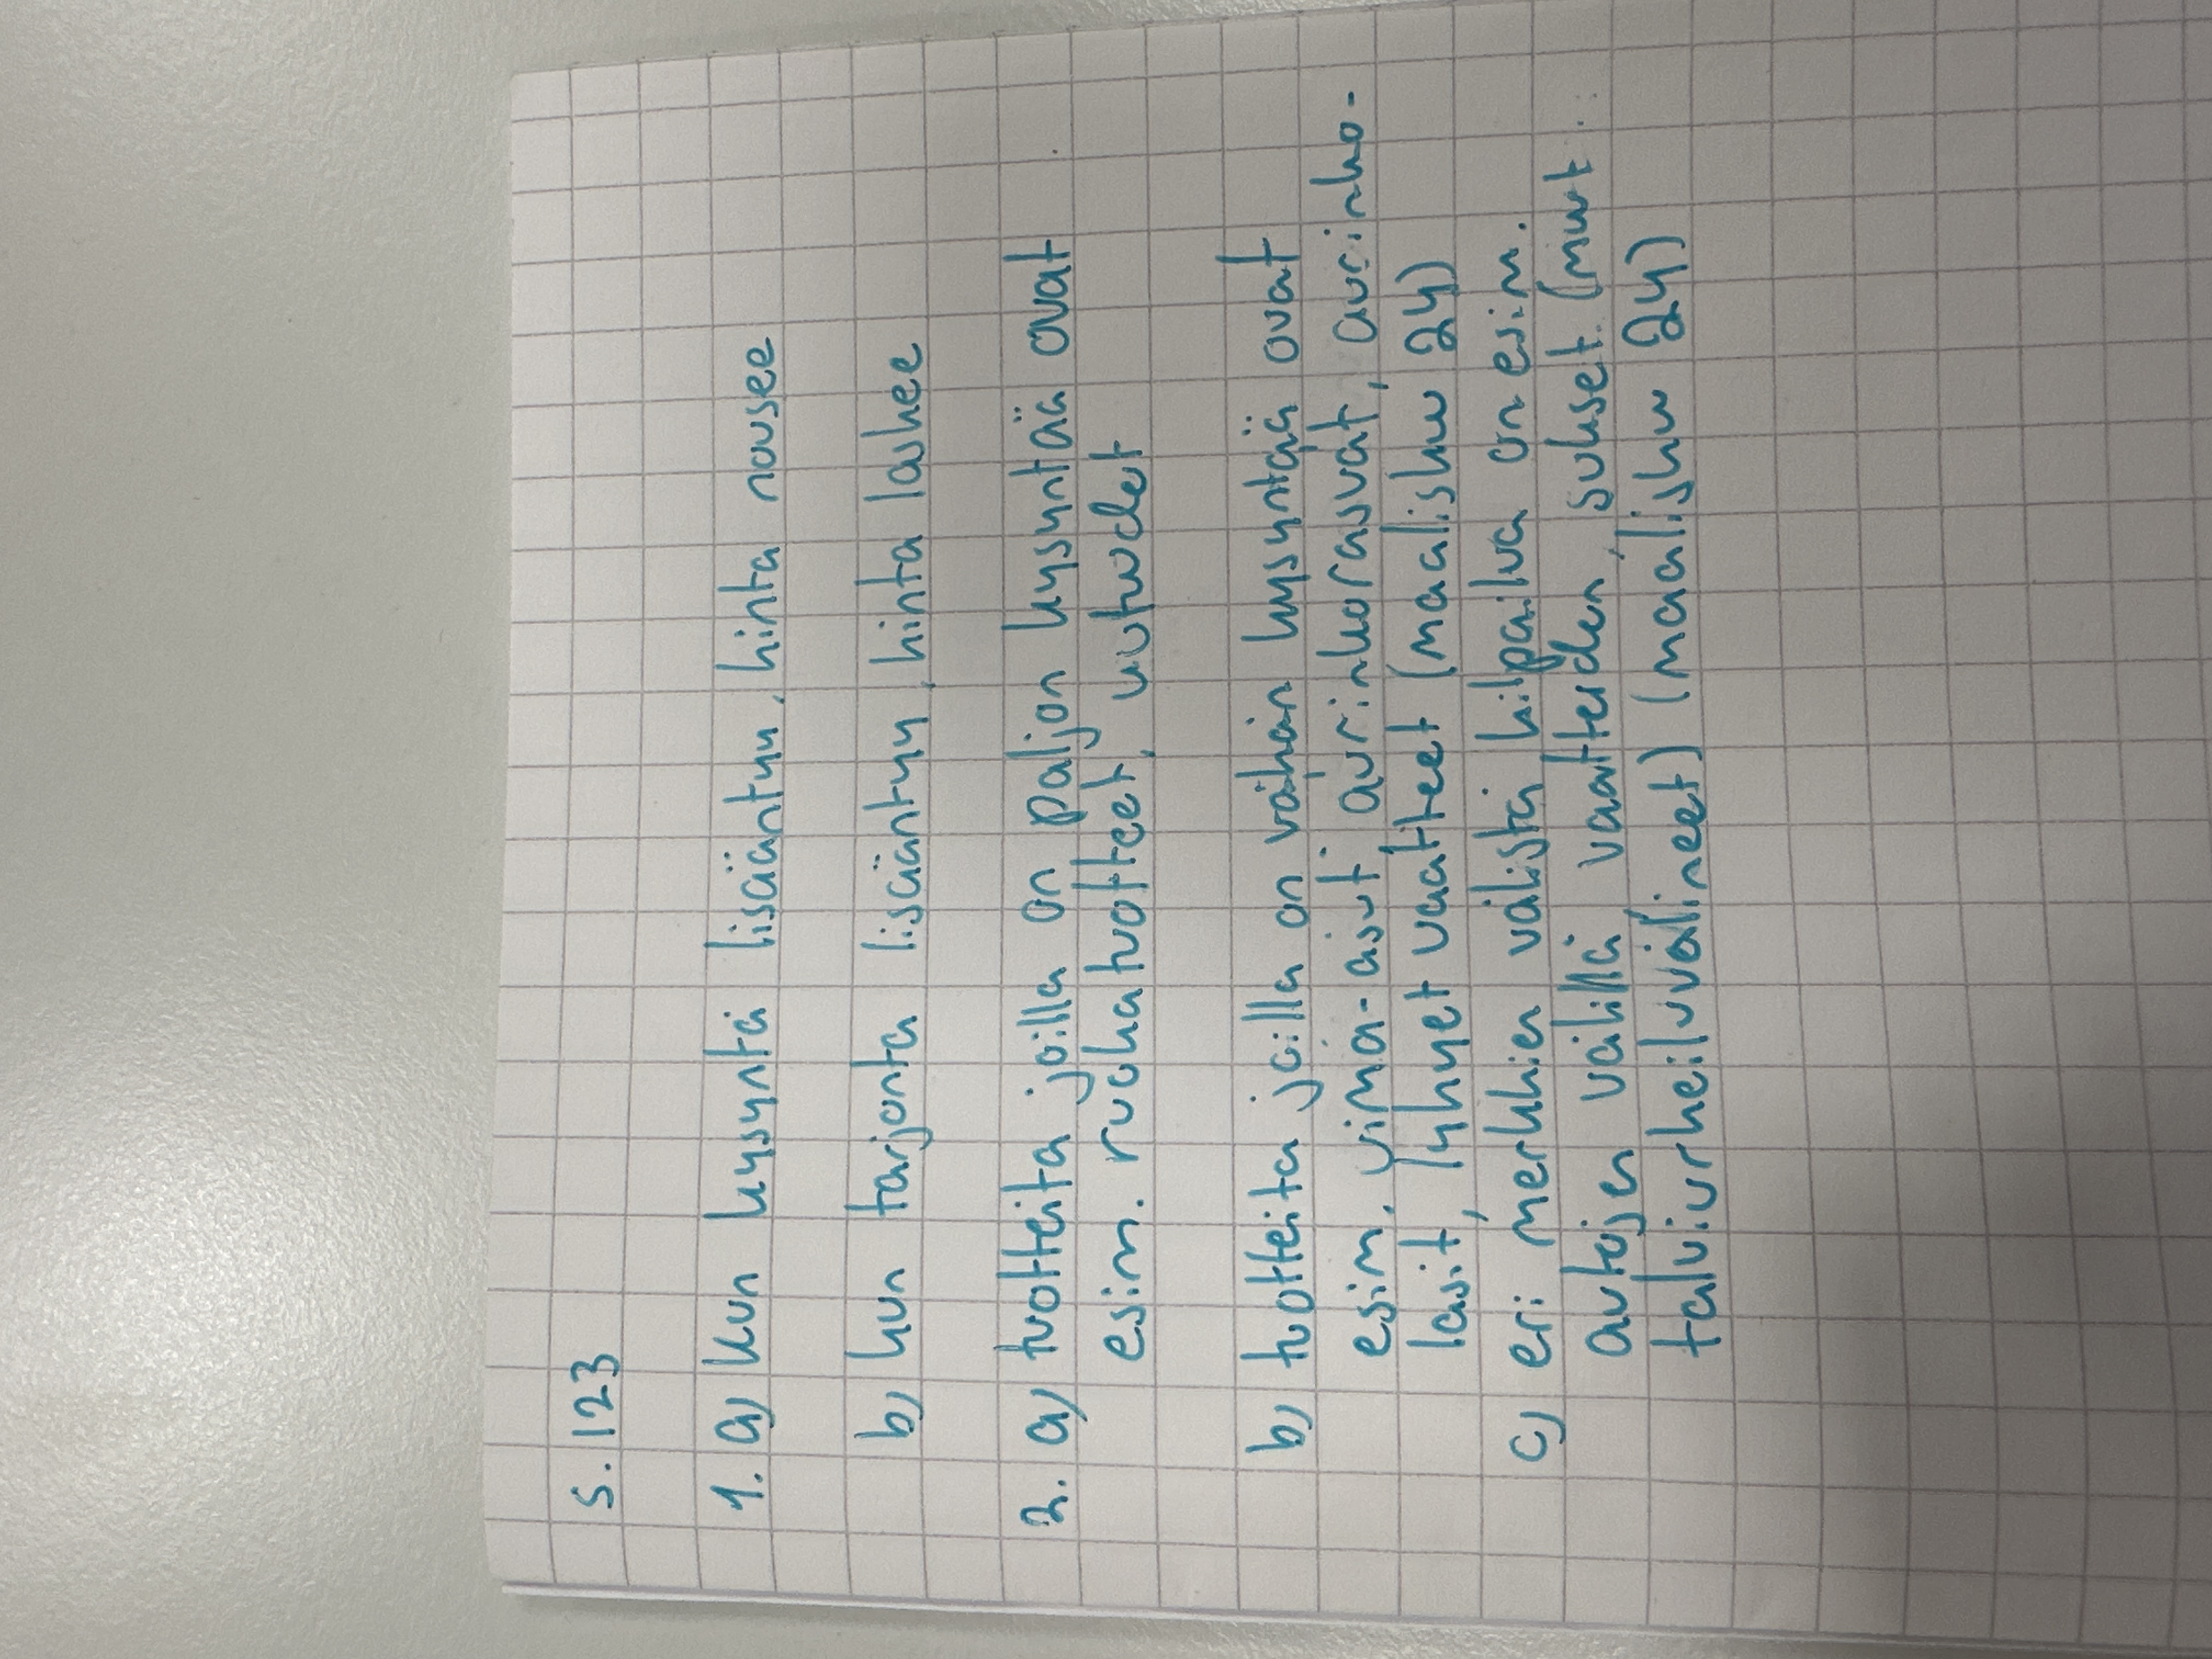 s. 123
1. a) kun kysyntä lisääntyy, hinta nousee
b) kun tarjonta lisääntyy, hinta laskee
2. a) tuotteita joilla on paljon kysyntää ovat
esim. ruokatuotteet, uutuudet
b) tuotteita joilla on vähän kysyntää ovat
esim. uima-asut, aurinkorasvat, aurinko-
lasit, lyhyet vaatteet (maalisku 24)
c) eri merkkien välistä kilpailua on esim.
autojen välillä vaatteiden, sukset (muut
talviurheiluvälineet) (maalisku 24)